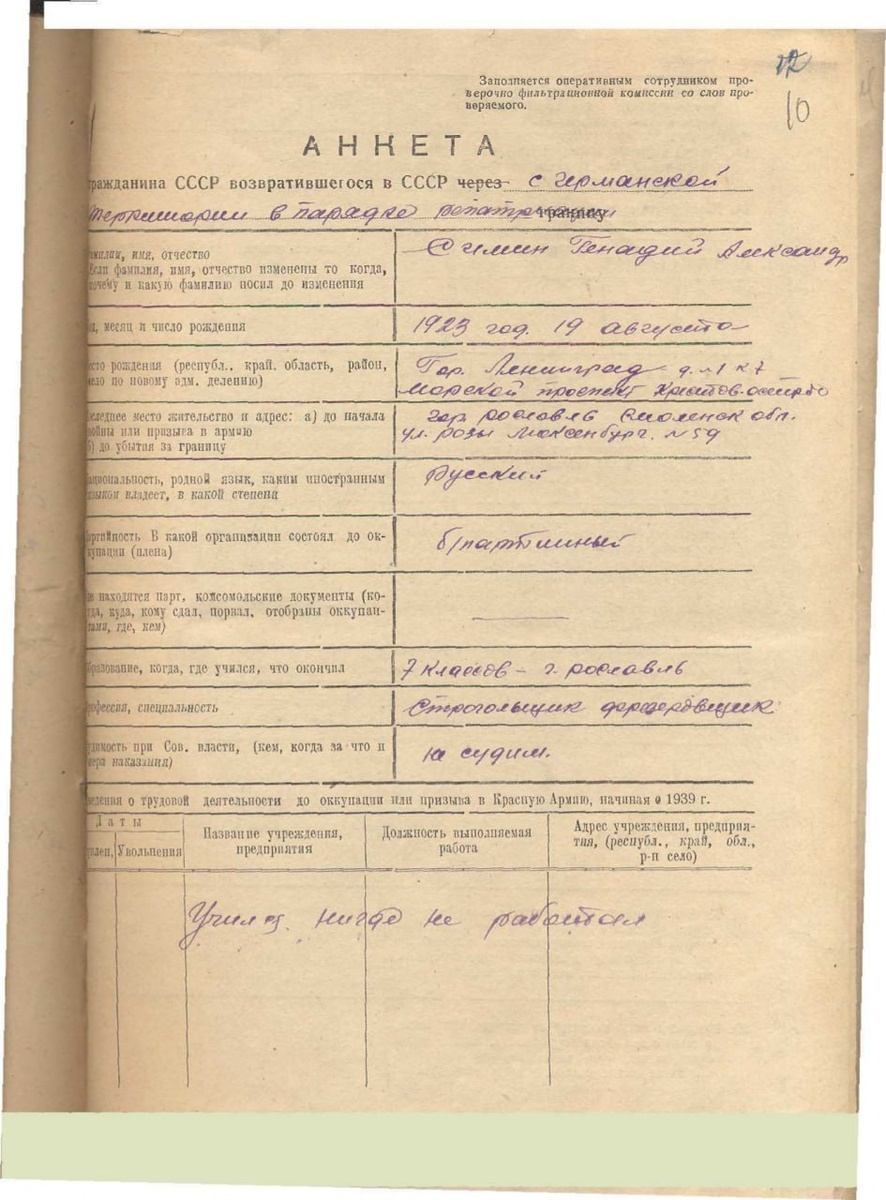 12
10
Заполняется оперативным сотрудником про-
верочно фильтрационной комиссии со слов про-
веряемого.
АНКЕТА
гражданина СССР возвратившегося в СССР через с германской
территории в парядке репатри границу
амилия, имя, отчество
Если фамилия, имя, отчество изменены то когда,
почему и какую фамилию носил до изменения
Симин Генадий Александр
месяц и число рождения
1923 год. 19 августа
есто рождения (республ., край, область, район,
село по новому адм. делению)
Гор. Ленинград д. №1 к 7
морской проспект
оследнее место жительство и адрес: а) до начала
войны или призыва в армию
б) до убытия за границу
гор рославль Смоленск обл.
ул. розы Люксенбург. №59
ациональность, родной язык, каким иностранным
языком владеет, в какой степени
Русский
артийность В какой организации состоял до ок-
купации (плена)
б/партииный
де находятся парт, комсомольские документы (ко-
гда, куда, кому сдал, порвал, отобраны оккупан-
тами, где, кем)
бразование, когда, где учился, что окончил
7 классов – г. рославль
рофессия, специальность
Строгольщик
удимость при Сов. власти, (кем, когда за что и
мера наказания)
не судим.
ведения о трудовой деятельности до оккупации или призыва в Красную Армию, начиная с 1939 г.
Даты
Увольнения
Название учреждения,
предприятия
Должность выполняемая
работа
Адрес учреждения, предприя-
тия, (республ., край, обл.,
р-п село)
Училя. нигде не работал